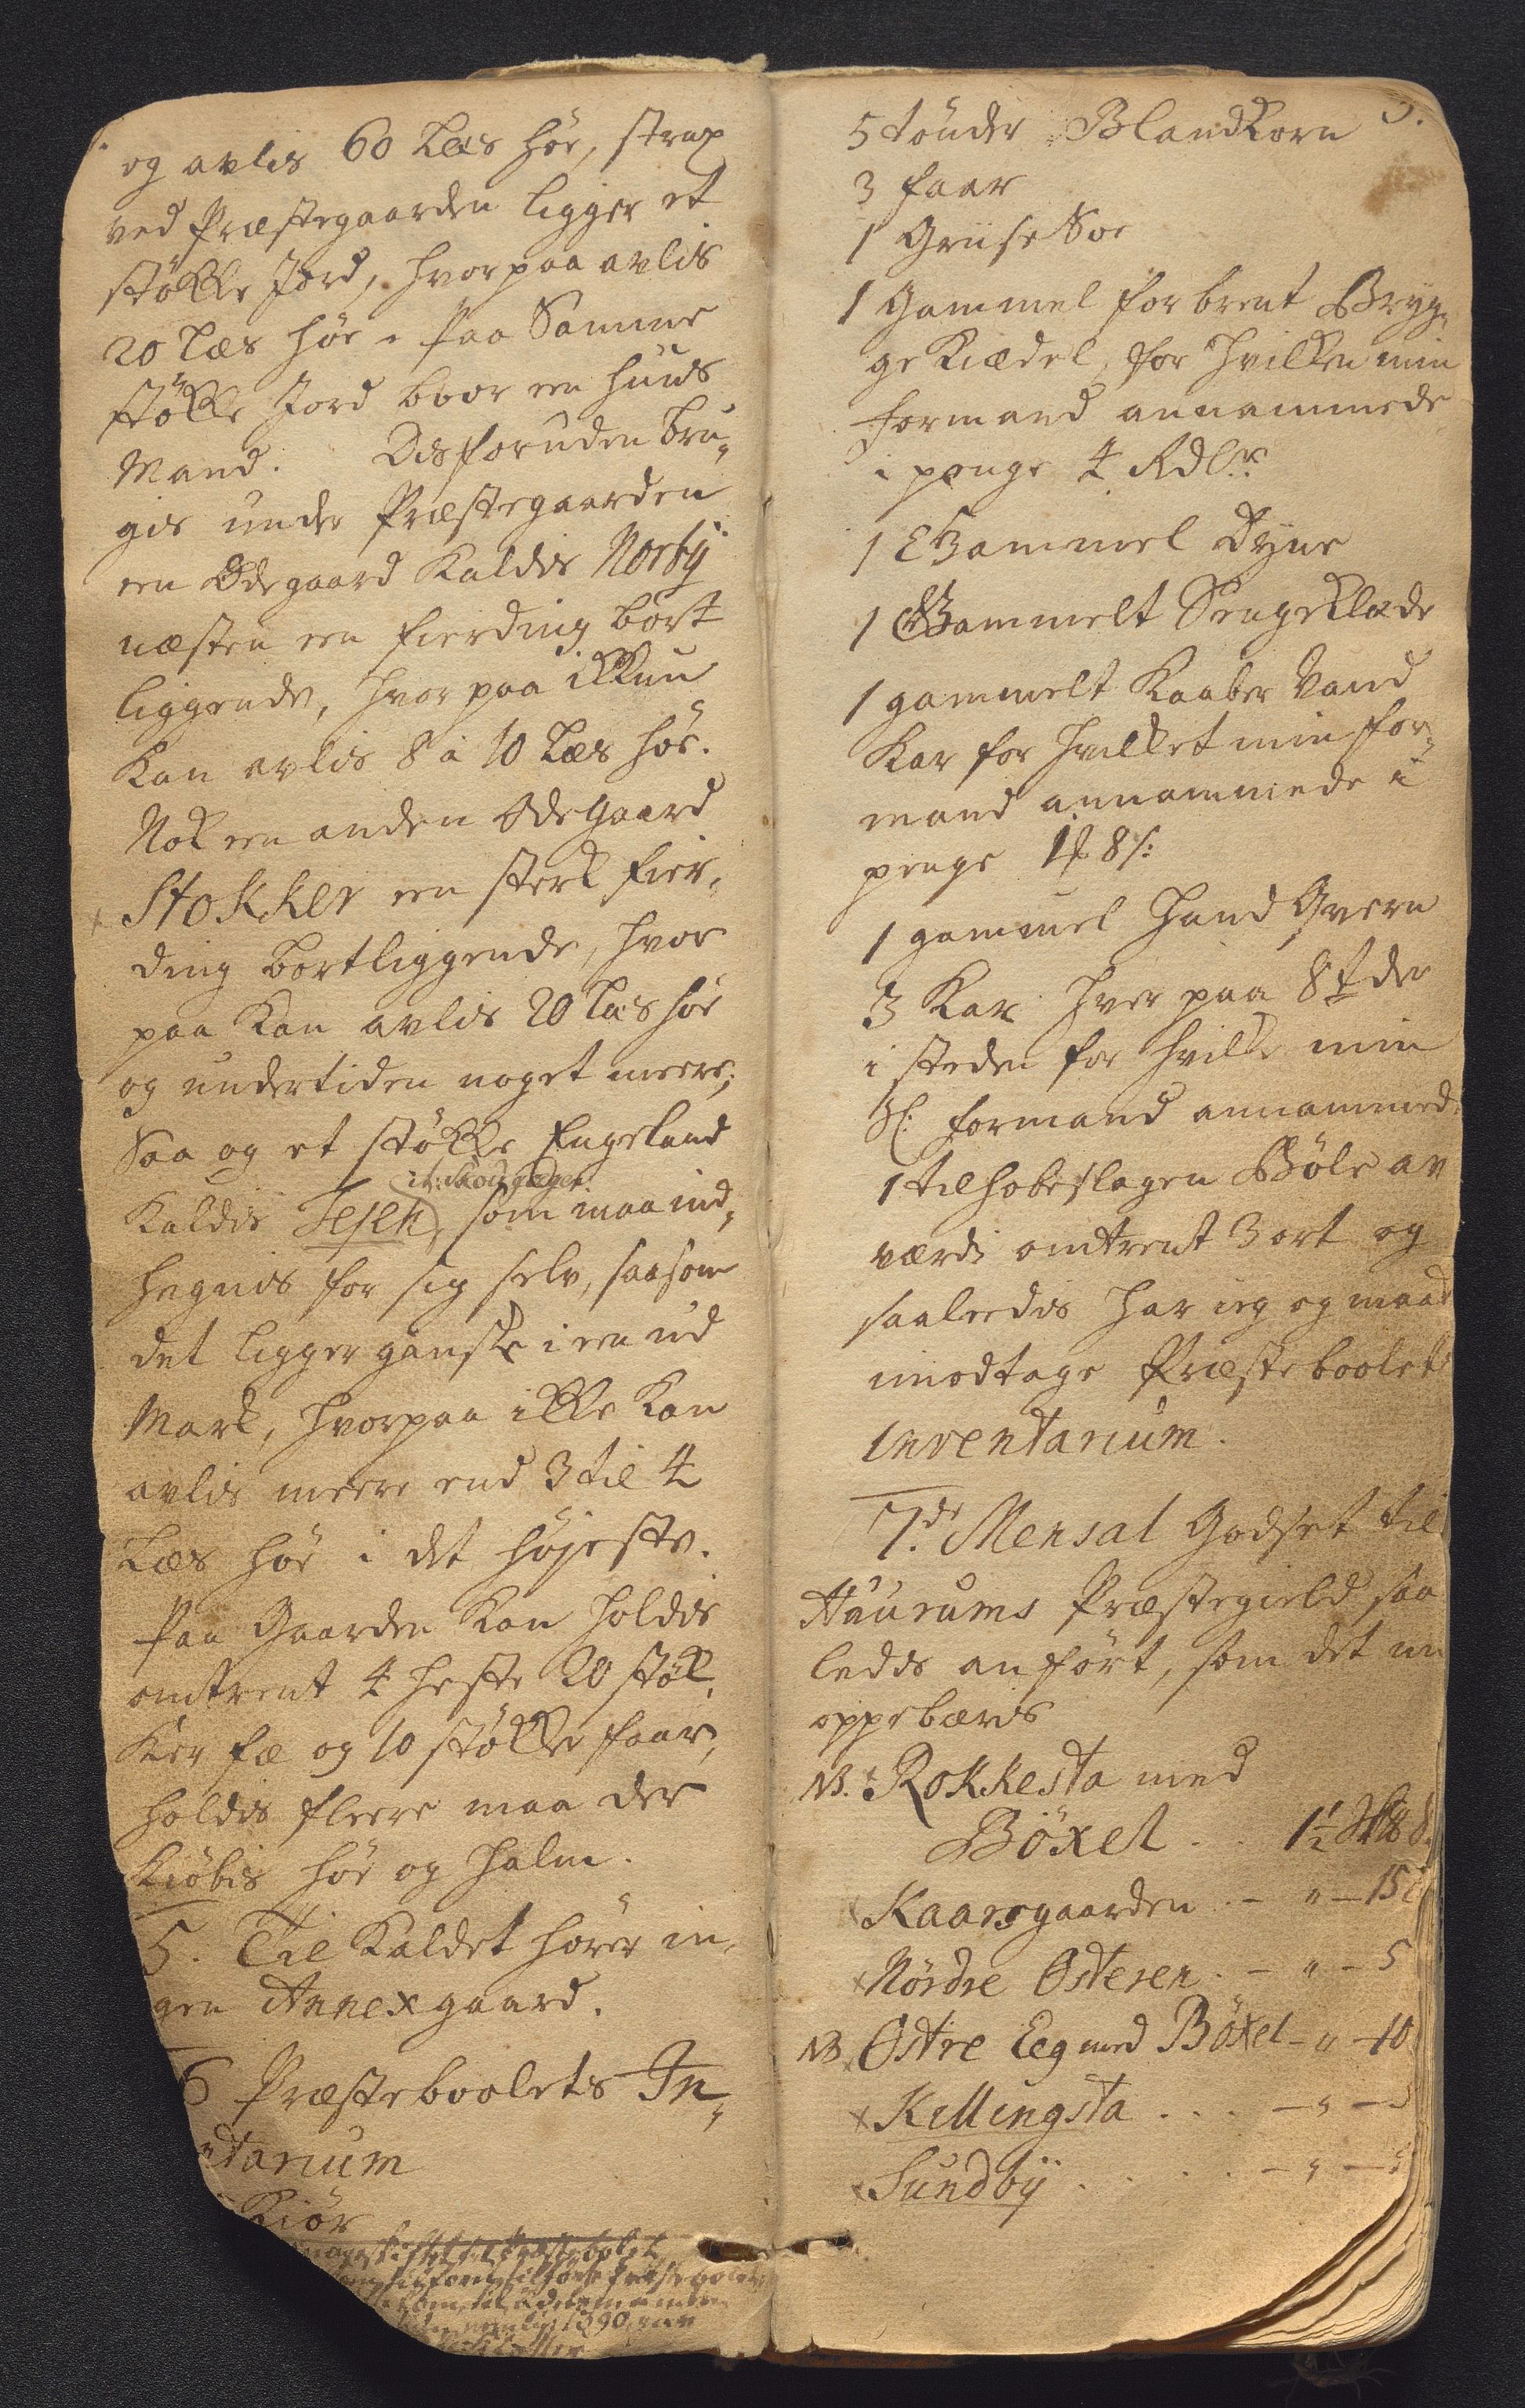 og avlis 60 Læs höe, strax
ved Præstegaarden ligger et
stökke Jord, hvorpaa avlis
20 Læs höe. Paa Samme
stökke Jord boor en Huus
Mand. Desforuden bru„
gis under Præstegaarden
een Ödegaard Kaldis Norby
næsten een fierding bort
liggende, hvorpaa ikkun
Kan avlis 8 à 10 Læs höe.
Nok een anden Ödegaard
Stokker een sterk fier„
ding bortliggende, hvor
paa Kan avlis 20 Læs höe
og undertiden noget meere;
Saa og et stökke Engeland
Kaldis Jesen, som maa ind„
hegnis for sig selv, saasom
det ligger ganske i een ud
Mark, hvorpaa ikke Kan
avlis meere end 3 til 4
Læs höe i det höjeste.
Paa Gaarden Kan holdis
omtrent 4 heste 20 stök„
Ker fæ og 10 stökker faar,
holdis fleere maa der
Kiöbis höe og halm.
5. Til Kaldet hörer in„
gen Annexgaard.
6 Præsteboolets In„
ntarium
Kiör
5 tönder Blandkorn
3 faar
1 Griise Soe
1 Gammel forbrent Bryg„
ge Kiædel, for hvilken min
formand annammede
i penge 4 Rdlr.
1 Gammel Dyne
1 Gammelt Sengeklæde
1 gammelt Kaaber Vand
Kar for hvilket min for„
mand annammede i
penge 1 8 s:
1 gammel Hand Qvern
3 Kar hver paa 8 tdr
i steden for hvilke min
Sl. formand annammed
1 tilhobeslagen Böle av
værdi omtrent 3 ort og
saaledis har ieg og maat
imodtage Præsteboolets
Inventarium.
7de Mensal Godset til
Aurums Præstegield saa
ledis anfört, som det nu
oppebæris
NB. Rokkesta med
Böxel . . 1½
Kaarsgaarden . – „ – 15
x Nördre Österen . – „ – 5
NB x Östre Eeg med Böxel – „ – 10
x Killingsta . . . – „ –
x Sundby . . . . – „ –